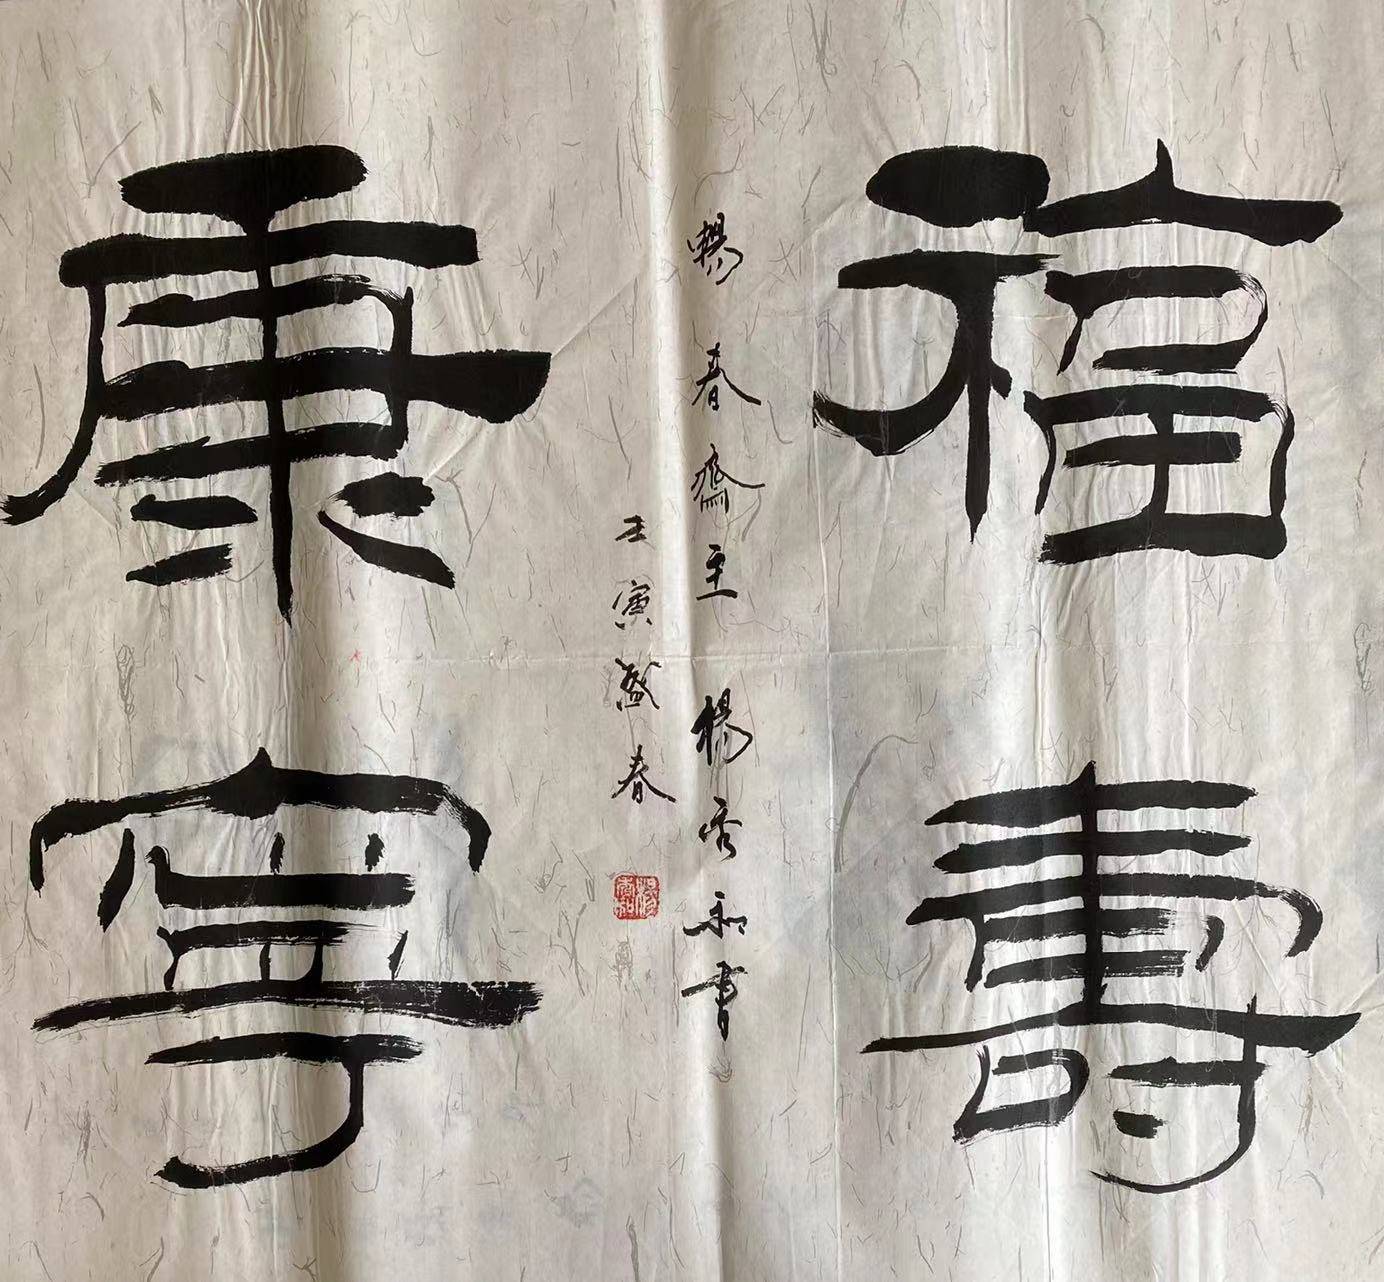 福壽
康寧
暢春齋主楊秀和書
壬寅盛春